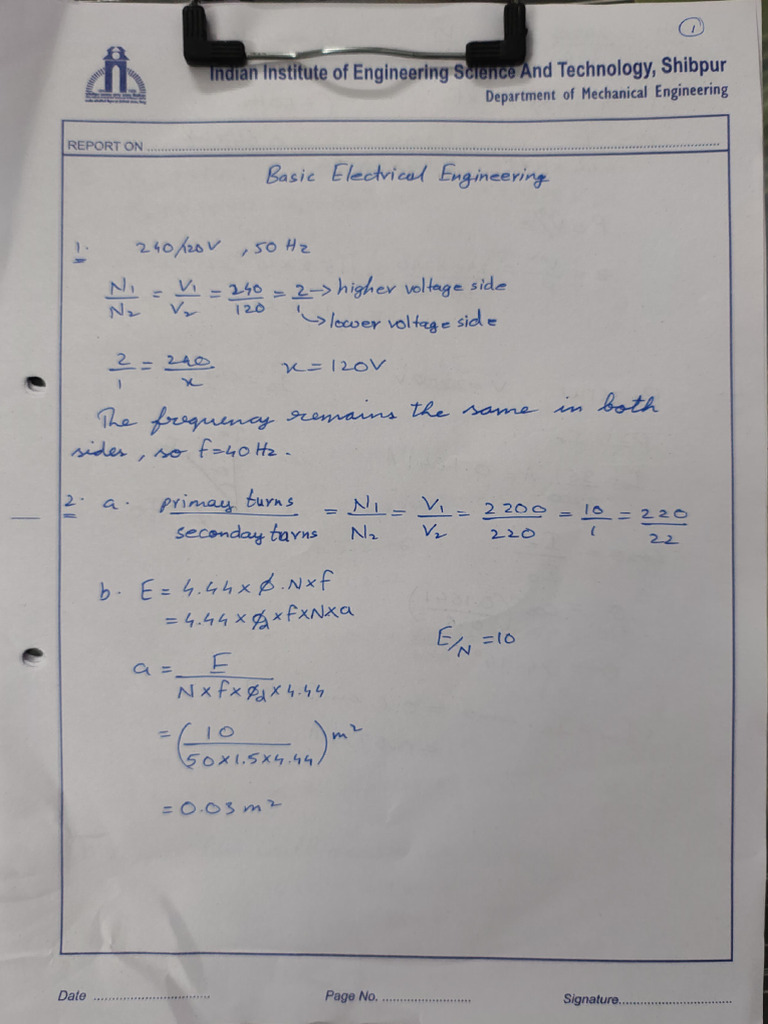 1
Indian Institute of Engineering Science And Technology, Shibpur
Department of Mechanical Engineering
REPORT ON
Basic Electrical Engineering
1. 240/120V , 50 Hz
N1/N2 = V1/V2 = 240/120 = 2/1 → higher voltage side
↳ lower voltage side
2/1 = 240/x x = 120V
The frequency remains the same in both
sides, so f=40 Hz.
2. a. primay turns/seconday turns = N1/N2 = V1/V2 = 2200/220 = 10/1 = 220/22
b. E = 4.44 x ϕ . N x f
= 4.44 x ϕd x f x N x a
E/N = 10
a = E/(N x f x ϕd x 4.44)
= (10/(50 x 1.5 x 4.44)) m2
= 0.03 m2
Date
Page No.
Signature